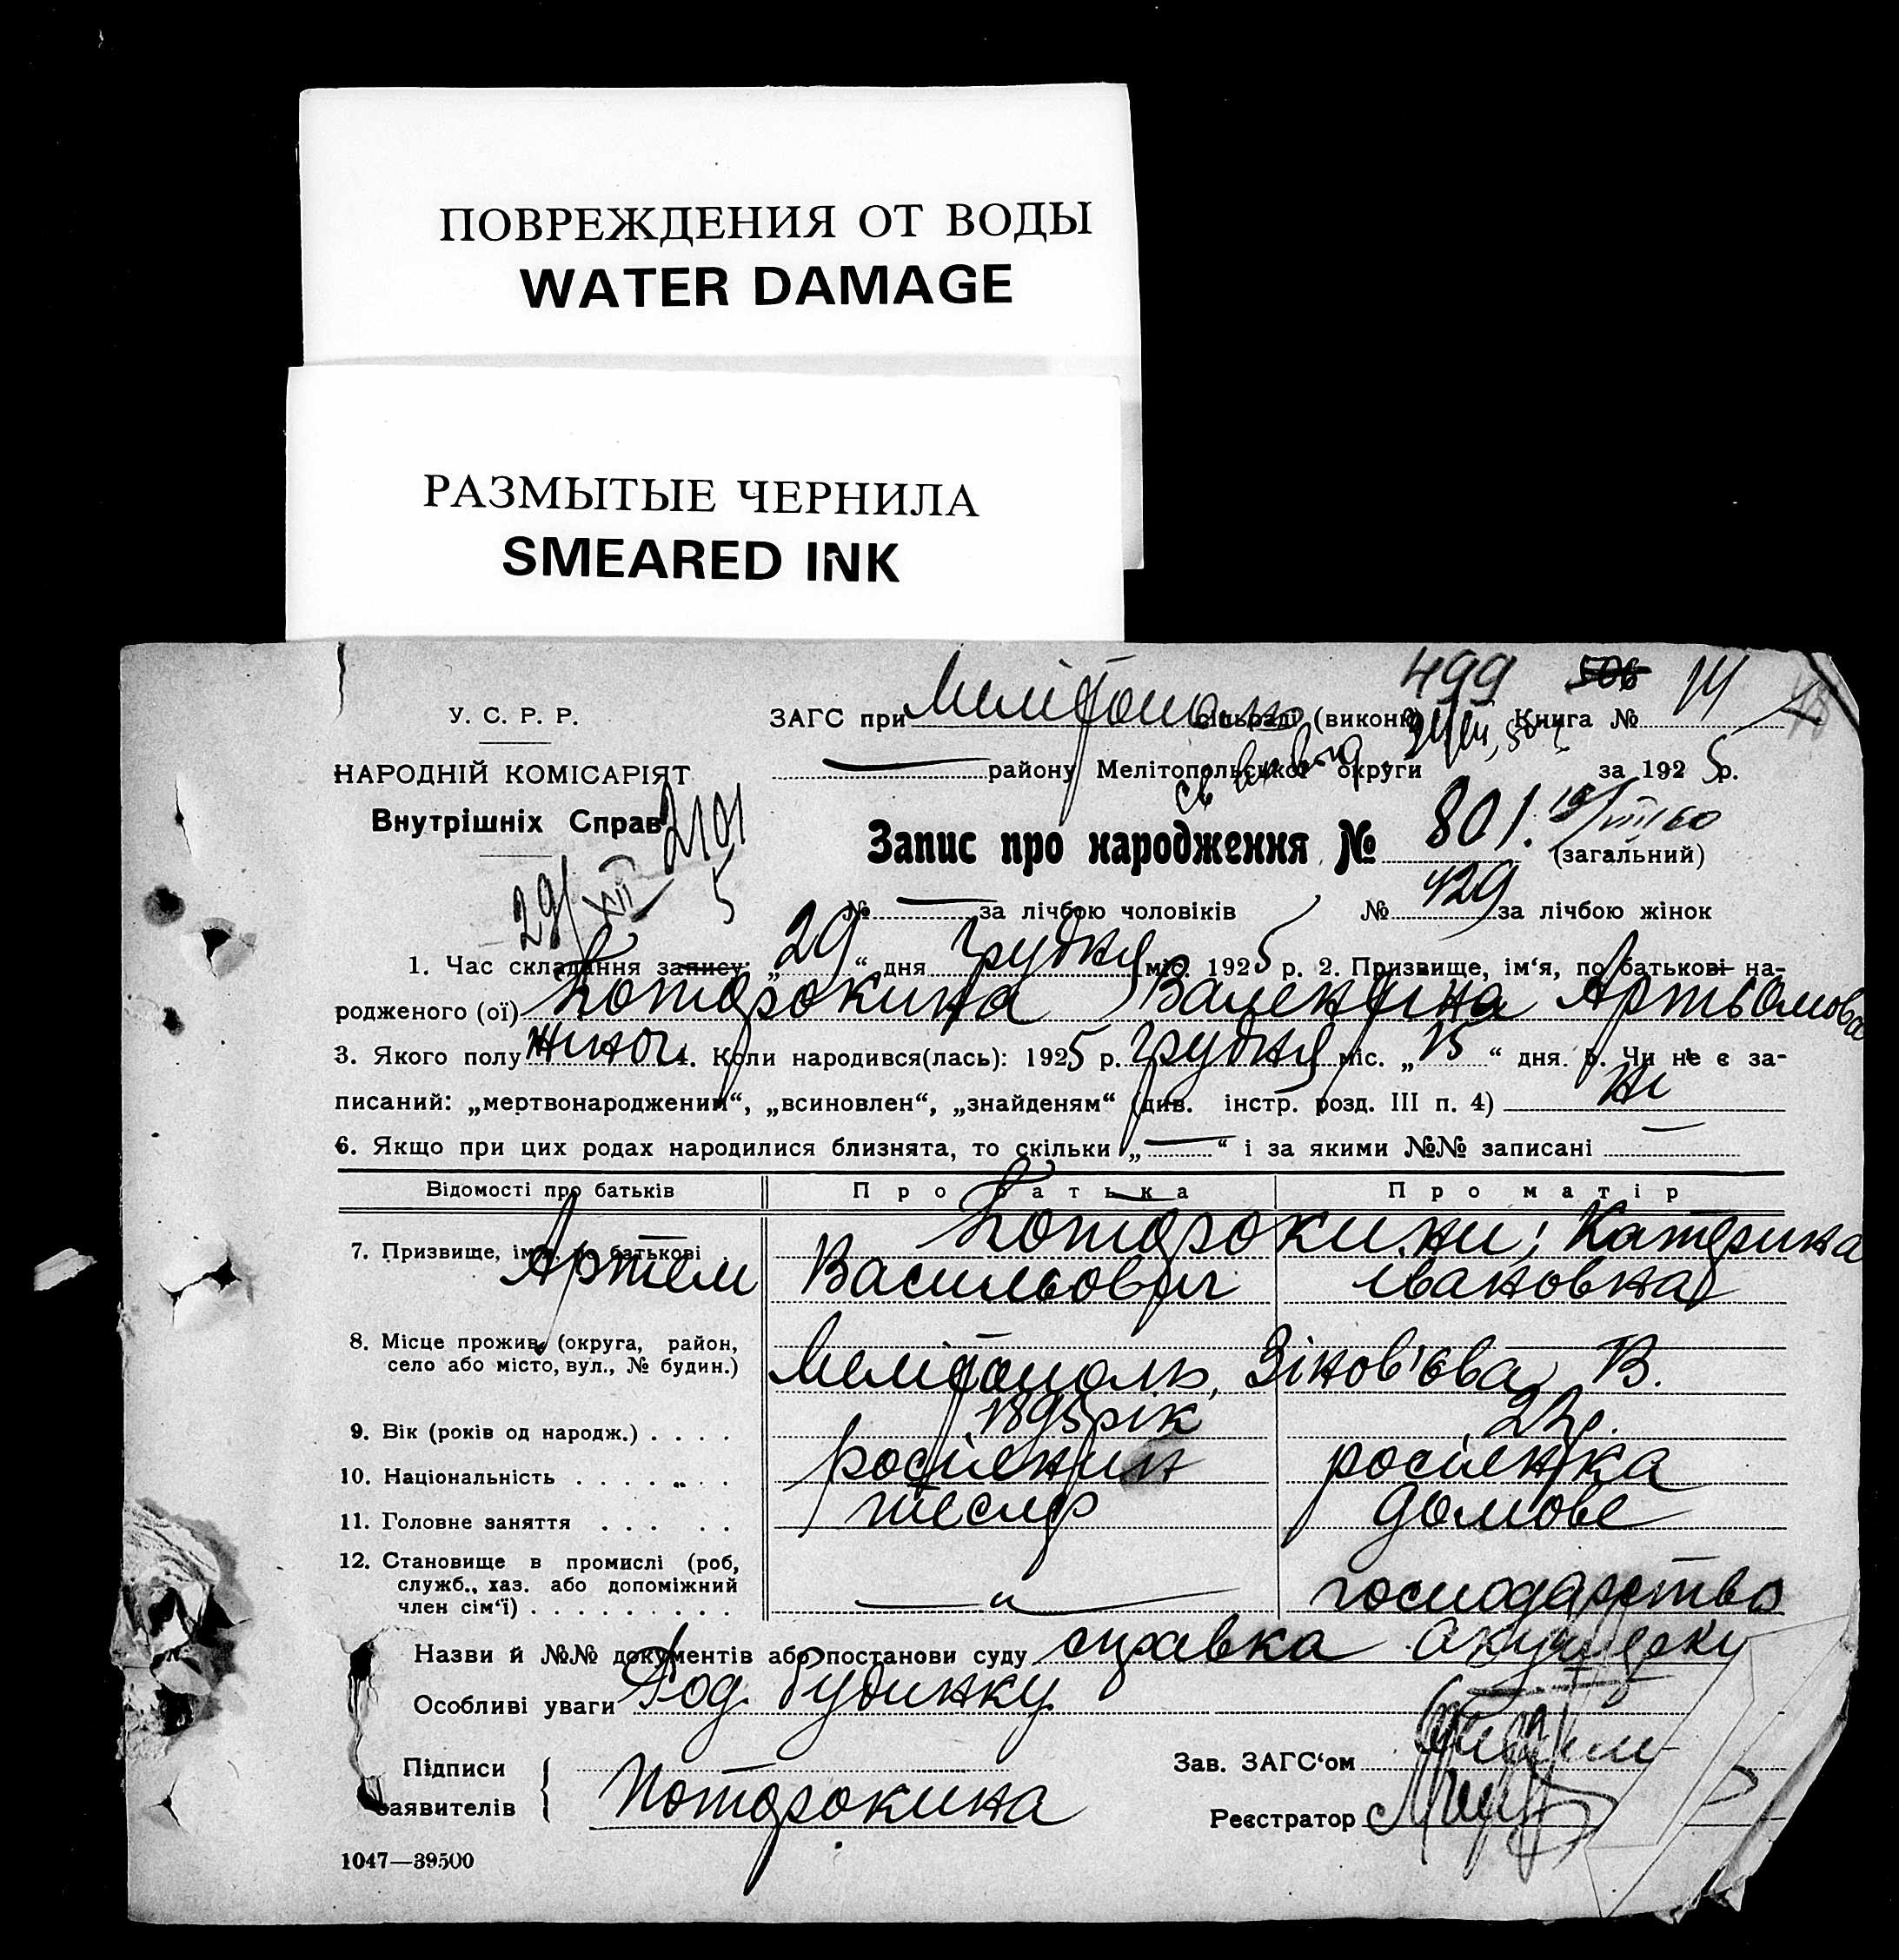 ПОВРЕЖДЕНИЯ ОТ ВОДЫ
WATER DAMAGE
РАЗМЫТЫЕ ЧЕРНИЛА
SMEARED INK
499 506 14
У. С. Р. Р.
ЗАГС при Мелітополь сільраді (виконк) Книга №
НАРОДНІЙ КОМІСАРІЯТ
— району Мелітопольської округи за 1925 р.
Внутрішніх Справ
2101
5
Запис про народження № 801.
19/VIII 60
(загальний)
29/XII
№ — за лічбою чоловіків № 429 за лічбою жінок
1. Час складання запису: „29“ дня грудня міс. 1925 р. 2. Призвище, ім‘я, по батькові на-
родженого (ої) Поторокина Валентина Артьомова
3. Якого полу жіноч. 4. Коли народився(лась): 1925 р. грудня міс. „15“ дня. 5. Чи не є за-
писаний: „мертвонароджений“, „всиновлен“, „знайденям“ (див. інстр. розд. III п. 4) Ні
6. Якщо при цих родах народилися близнята, то скільки „—“ і за якими №№ записані —
Відомості про батьків Про батька Про матір
7. Призвище, ім‘я, по батькові Поторокини; Катерина
Артем Васильович Івановна
8. Місце прожив. (округа, район,
село або місто, вул., № будин.) Мелітополь, Зінов'єва В.
9. Вік (років од народж.) . . . . 1895 рік 22 р.
10. Національність . . . . „ . . росіянин росіянка
11. Головне заняття . . . . . тесляр домове
12. Становище в промислі (роб,
служб., хаз. або допоміжний
член сім‘ї) . . . . . . . . . — „ — господарство
Назви й №№ документів або постанови суду справка акушерки
Особливі уваги Род. будинку
Підписи
заявителів { Поторокина
Зав. ЗАГС‘ом
Реєстратор
1047—39500